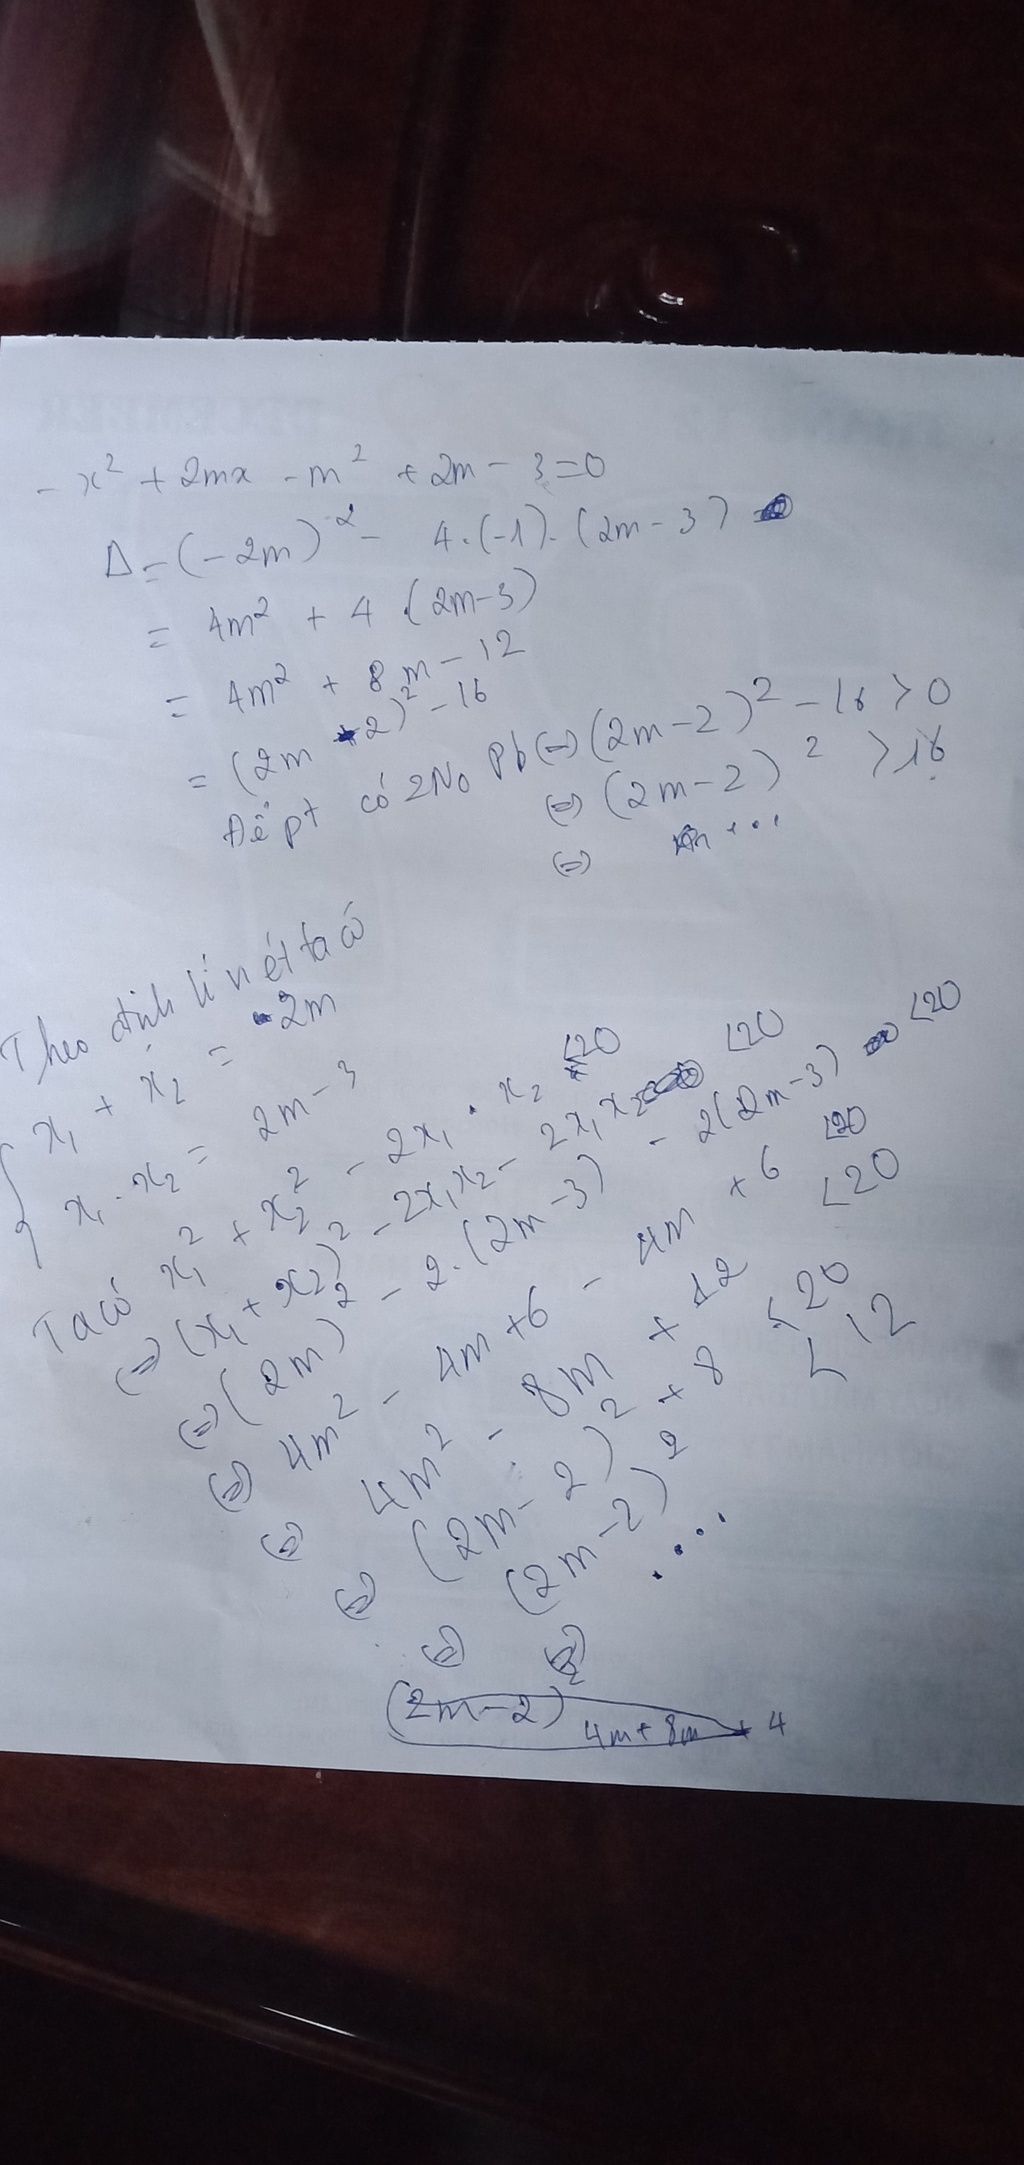 - x² + 2mx - m² + 2m - 3 = 0
Δ = (-2m)² - 4.(-1).(2m-3)
= 4m² + 4.(2m-3)
= 4m² + 8m - 12
= (2m + 2)² - 16
Để pt có 2No Pb (=) (2m-2)² - 16 > 0
(=) (2m-2)² > 16
(=) ...
Theo định lí viét ta có
x₁ + x₂ = 2m
x₁ . x₂ = 2m - 3
Ta có x₁² + x₂² - 2x₁ . x₂ <20
(=) (x₁ + x₂)² - 2x₁x₂ - 2x₁x₂ <20
(=) (2m)² - 2.(2m-3) - 2(2m-3) <20
(=) 4m² - 4m + 6 - 4m + 6 <20
(=) 4m² - 8m + 12 <20
(=) (2m-2)² + 8 <20
(=) (2m-2)² < 12
(=) ...
(2m-2)² 4m + 8m + 4